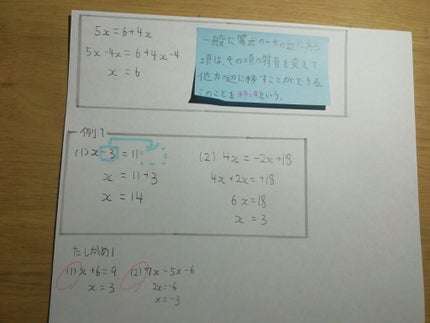 5x=6+4x
5x-4x=6+4x-4
x=6
一般に等式の一方の辺にある
項は、その項の符号を変えて
他方の辺に移すことができる。
このことを移項という。
例1
(1) x-3=11
x=11+3
x=14
(2) 4x=-2x+18
4x+2x=+18
6x=18
x=3
たしかめ1
(1) x+6=9
x=3
(2) 7x-5x-6
2x=-6
x=-3